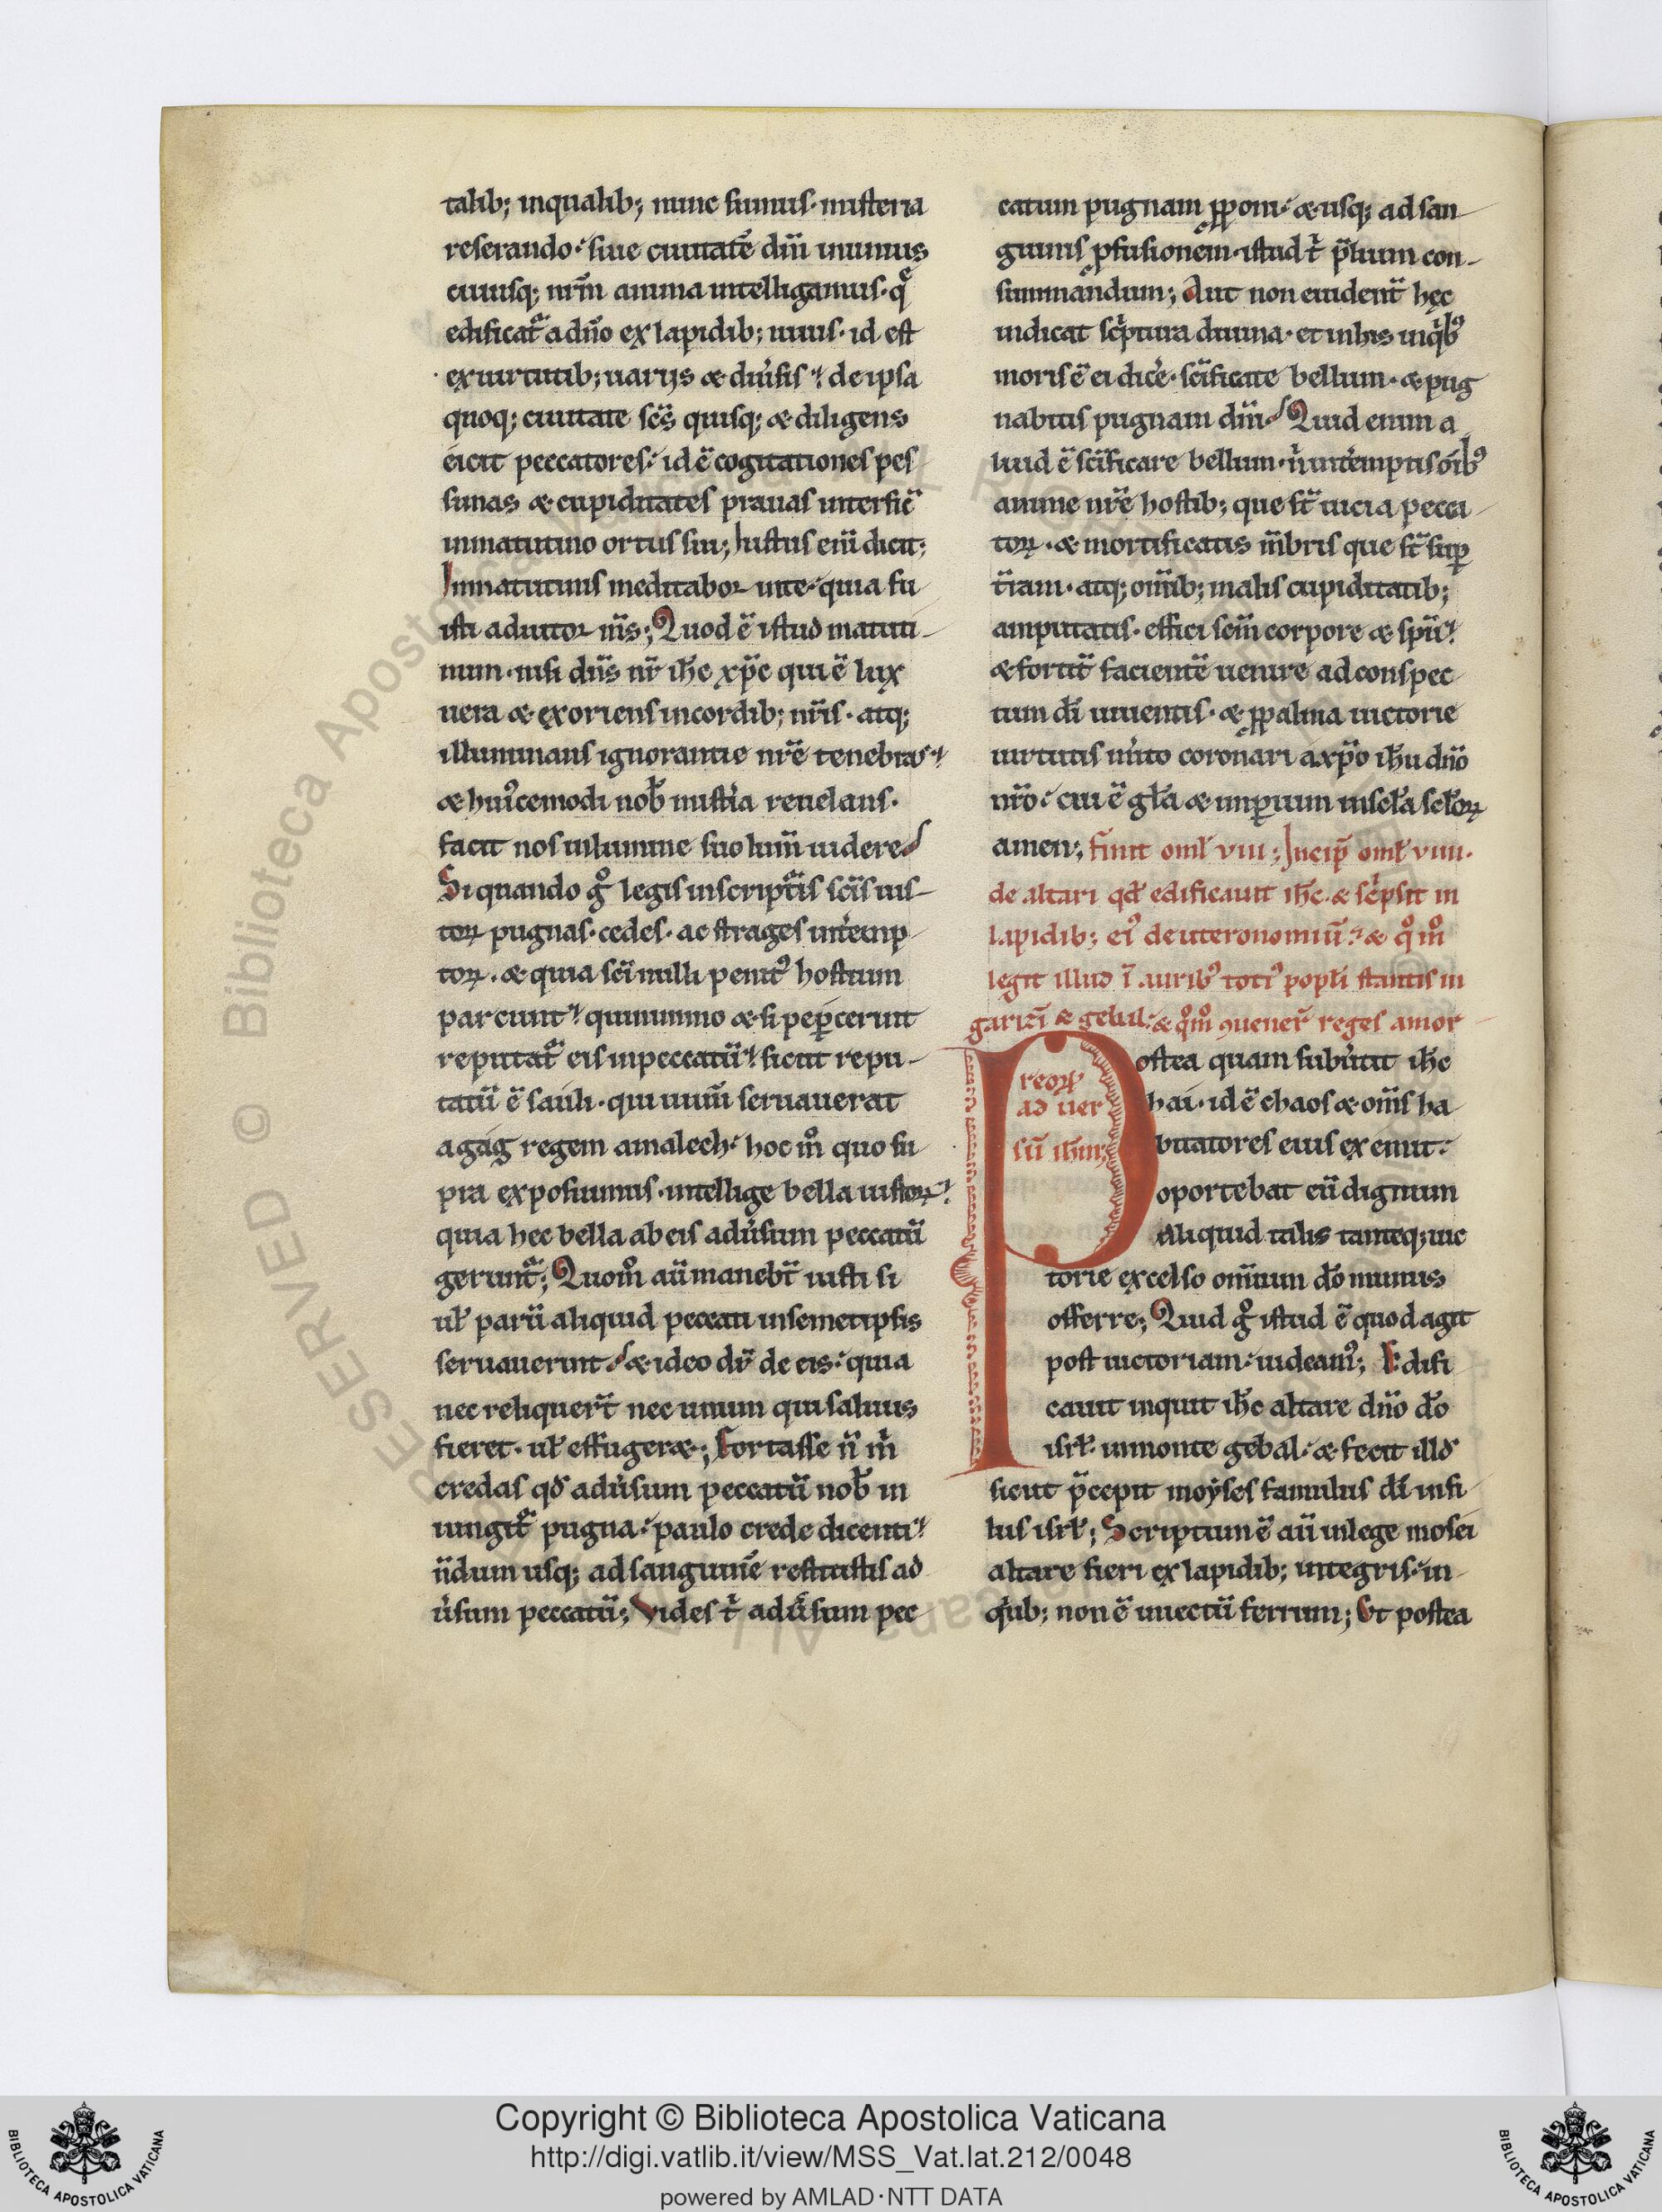 talib; inqualib; nunc sumus· misteria
reserando·́ siue ciuitatē dn̄i unius
cuiusq; nr̄m anima intelligamus· q̄
edificat᷑ a dn̄o ex lapidib; uiuis· id est
ex uirtutib; uarijs & diu̓sis ·́ de ipsa
quoq; ciuitate sc̄s quisq; & diligens
eicit peccatores·́ id ē cogitationes pes
simas & cupiditates prauas interfic̄
in matutino ortus sui; Iustus eni̅ dicit;
In matutinis meditabor in te·́ quia fu
isti adiutor m̄s; Quod ē istud matuti-
num· nisi dn̄s nr̄ ih̄c xp̄c qui ē lux
uera & exoriens in cordib; nr̄is· atq;
illuminans ignorantie nr̄e tenebras·́
& hui᷒cemodi nob̄ mist̓ia reuelans·
facit nos in lumine suo lum̄ uidere
Si quando g̊ legis in script᷑is sc̄is ius-
toꝝ pugnas· cedes· ac strages int̓emp
toꝝ· & quia sc̄i nulli penit᷒ hostium
parcunt·́ quinimmo & si peꝑcerint
reputat᷑ eis in peccatū·́ sicut repu-
tatū ē sauli· qui uiuū seruauerat
agag regem amalech·́ hoc m̊ quo su
pra exposuimus· intellige bella iustoꝝ·́
quia hec bella ab eis adu̓sum peccatū
gerunt᷑; Quom̊ aū manebt̄ iusti si
ul̄ parū aliquid peccati in semetipsis
seruauerint & ideo dr̄ de eis·́ quia
nec reliquer̄t nec unum qui saluus
fieret· ul̄ effuger&·; Fortasse n̄ m̓
credas qd̄ adu̓sum peccatū nob̄ in
iungit᷑ pugna·́ paulo crede dicenti·́
n̄dum usq; ad sanguinē restitistis ad
u̓sum peccatū; Vides t̓ adu̓sum pec
catum pugnam ꝓponi·́ & usq; ad san
guinis ꝓfusionem· istud t̓ p̄lium con-
summandum; Aut non euident̄ hęc
indicat sc̓ptura diuina· et in his in qͥb᷒
moris ē ei dic̓e· sc̄ificate bellum· & pug
nabitis pugnam dn̄i Quid enim a
liud ē sc̄ificare bellum· n̓ int̓emptis oīb᷒
anime nr̄e hostib; que st̄ iucia pecca
toꝝ·& mortificatis m̄bris que st̄ suꝑ
t̄ram· atq; om̄ib; malis cupiditatib;
amputatis· effici sc̄m corpore & spū·́
& fortit̄ facientē uenire ad conspec
tum dī uiuentis· & ꝓ palma uictorie
uirtutis m̓ito coronari a xp̄o ih̄u dn̄o
nr̄o·́ cui ē gl̄a & imꝑium in secl̄a sclo̅ꝝ
amen; finit oml̄ viii; Incip̄ oml̄ viiii·
de altari qd̄ edificauit ih̄c·& sc̓psit in
lapidib; ei᷒ deuteronomiū·́ & q̊ m̊
legit illud ī aurib᷒ toti᷒ popl̄i stantis in
garizī & gebal·́ & q̊m̊ ꝯuener̄ reges amor
reoꝝ
ad uer
sū ih̄m;
Postea quam subu̓tit ih̄c
hai· id ē chaos & om̄s ha
bitatores eius exemit·́
oportebat eū dignum
aliquid talis tanteq; uic
torie excelso omnium dō munus
offerre; Quid g̊ istud ē quod agit
post uictoriam·́ uideam᷒; Edifi
cauit inquit ih̄c altare dn̄o dō
isrl̄· in monte gebal·́ & fecit illd̄
sicut p̄cepit moẏses famulus dī in fi
lus isrl̄; Scriptum ē aū in lege mosei
altare fieri ex lapidib; integris·́ in
qͥb; non ē iniectū ferrum; Et postea
Copyright © Biblioteca Apostolica Vaticana
http://digi.vatlib.it/view/MSS_Vat.lat.212/0048
powered by AMLAD·NTT DATA
BIBLIOTECA APOSTOLICA VATICANA
BIBLIOTECA APOSTOLICA VATICANA